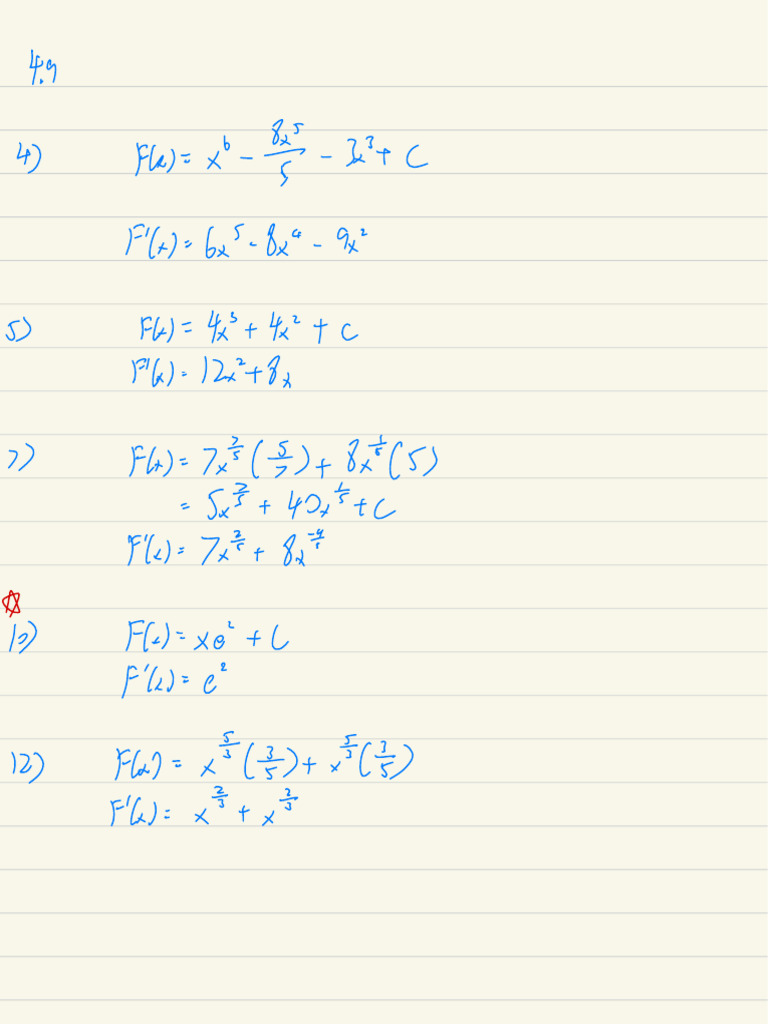 4.9
4) F(x) = x^6 - 8x^5/5 - 3x^3 + C
F'(x) = 6x^5 - 8x^4 - 9x^2
5) F(x) = 4x^3 + 4x^2 + C
F'(x) = 12x^2 + 8x
7) F(x) = 7x^(7/5) (5/7) + 8x^(1/5) (5)
= 5x^(7/5) + 40x^(1/5) + C
F'(x) = 7x^(2/5) + 8x^(-4/5)
☆
10) F(x) = xe^2 + C
F'(x) = e^2
12) F(x) = x^(5/3) (3/5) + x^(5/3) (3/5)
F'(x) = x^(2/3) + x^(2/3)